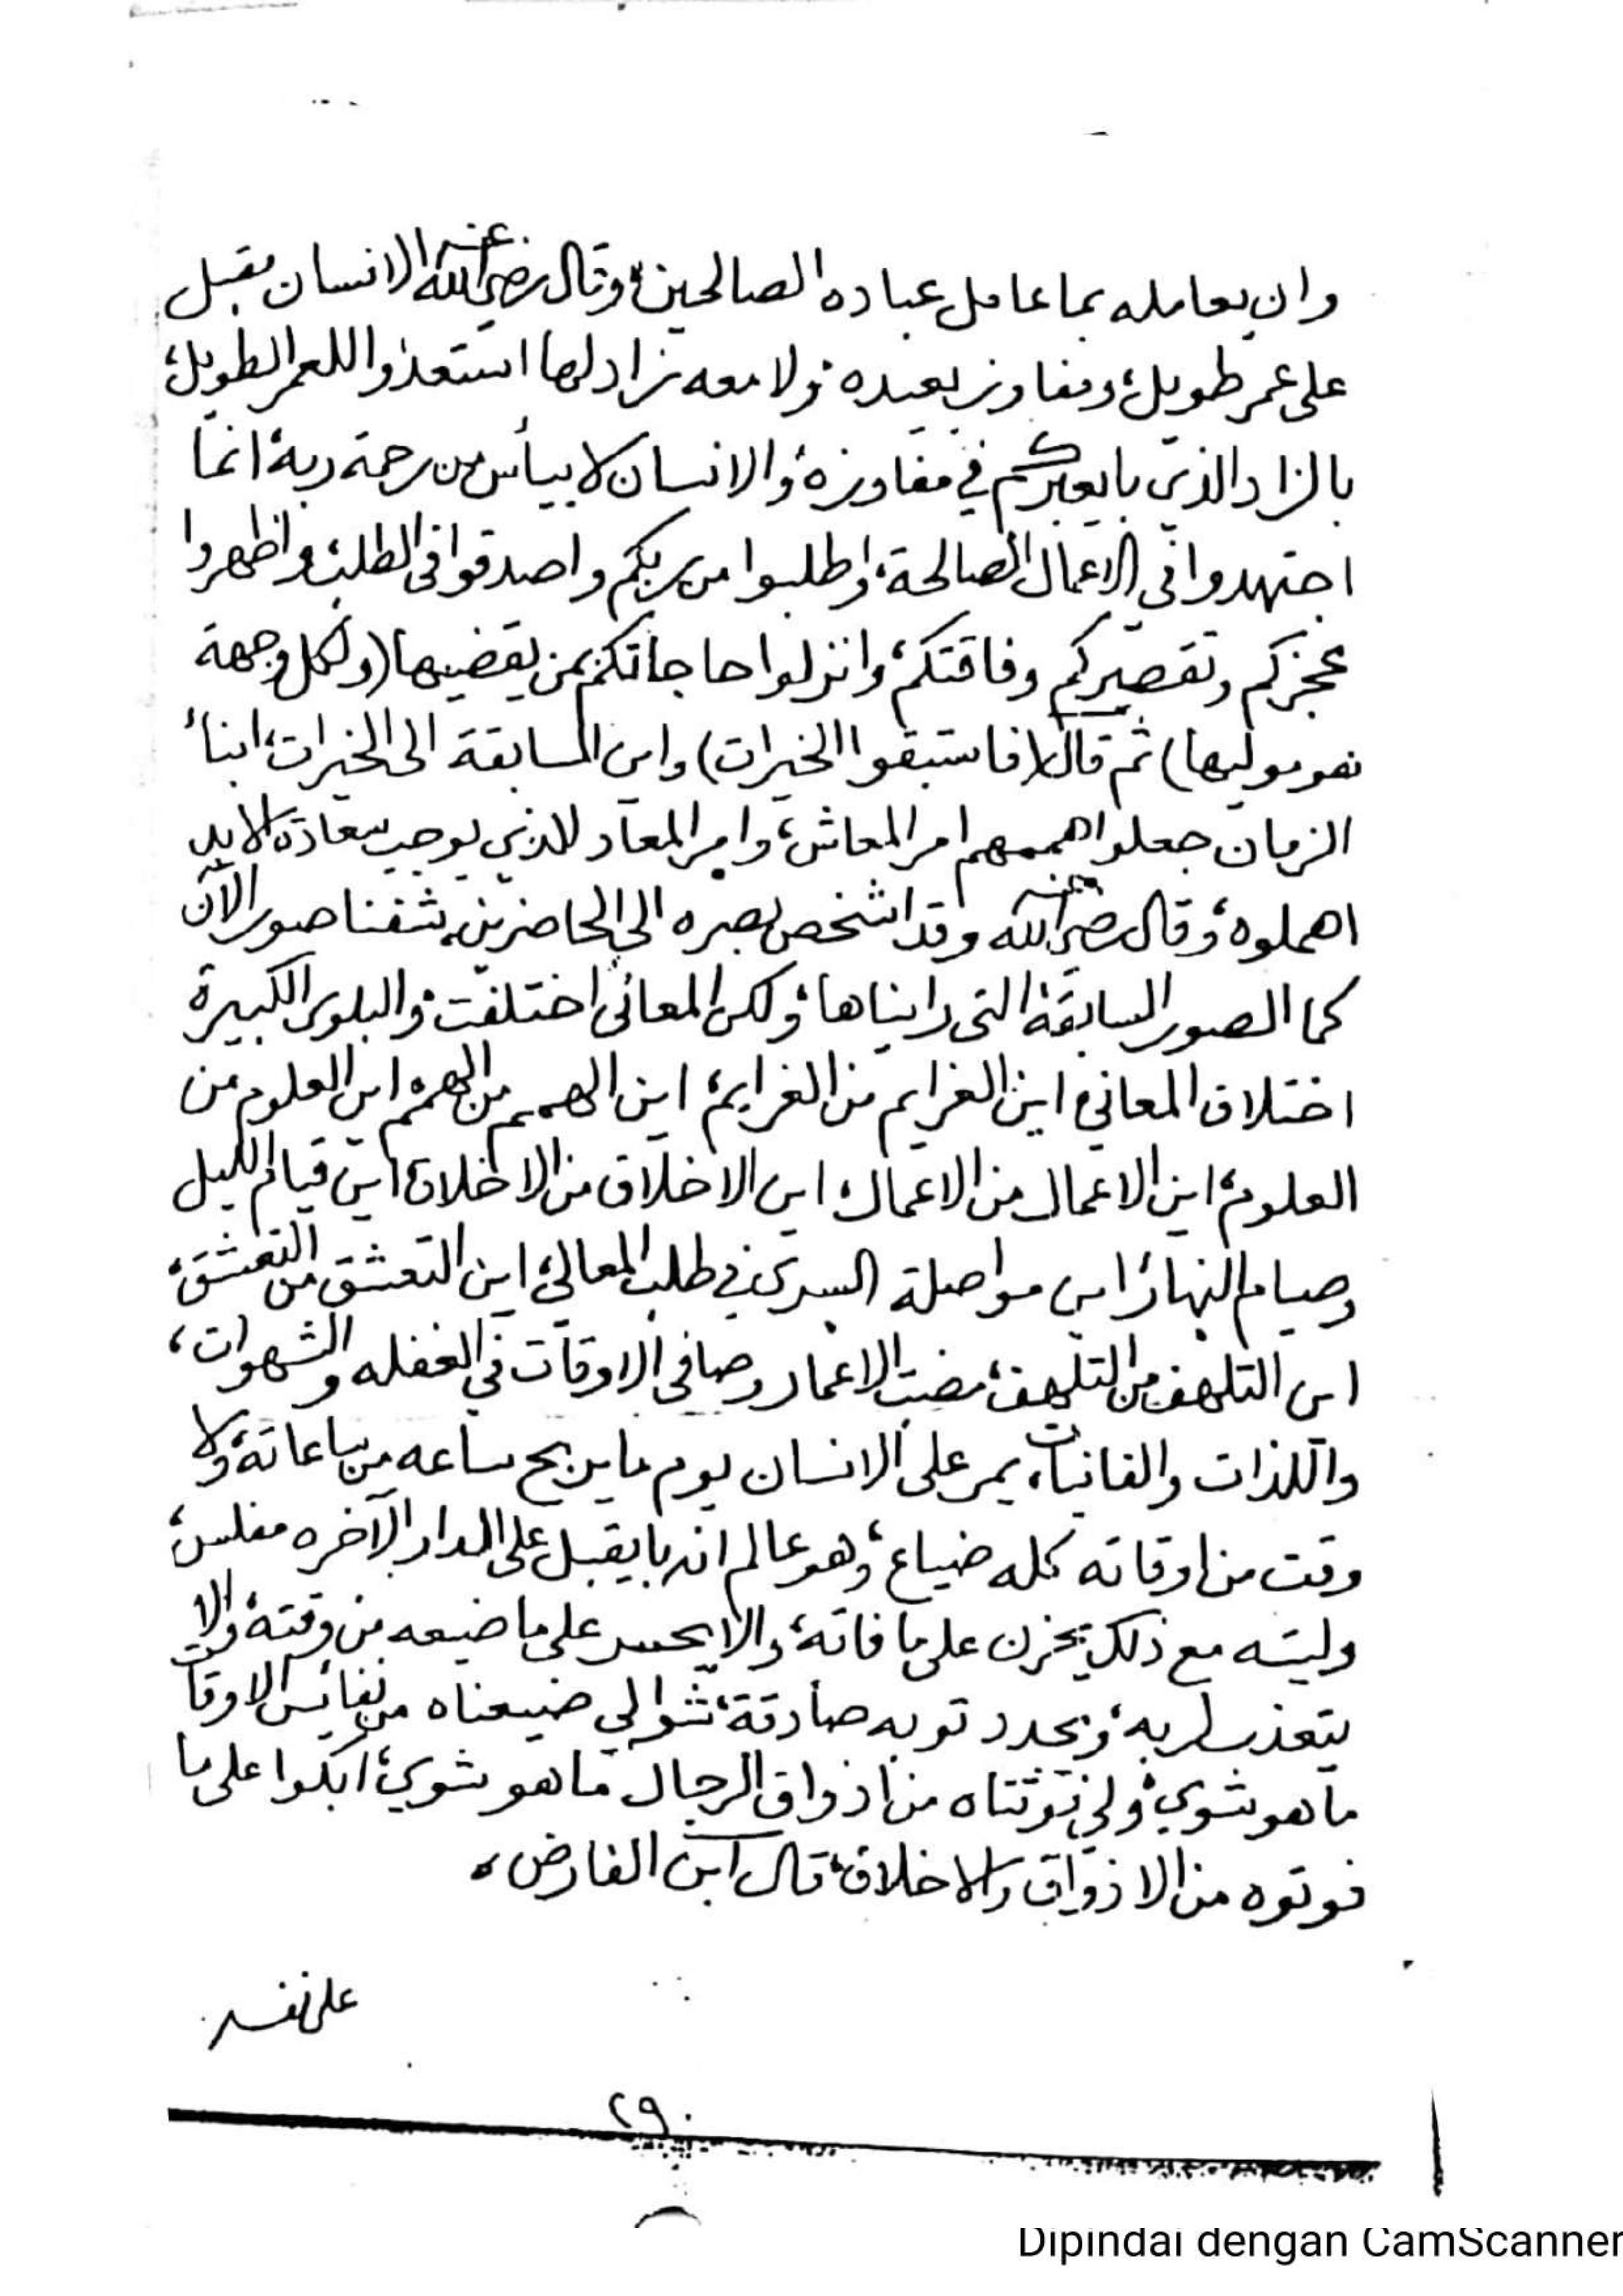 وان يعامله بما عامل عباده الصالحين، وقال رضي الله عنه الانسان مقبل
على عمر طويل، ومفاوز بعيده، ولا معه زاد لها استعدوا للعمر الطويل،
بالزاد الذي بايعبركم في مفاوزه، والانسان لا ييأس من رحمة ربه، انما
اجتهدوا في الاعمال الصالحة، واطلبوا من ربكم واصدقوا في الطلب، واظهروا
عجزكم وتقصيركم وفاقتكم، وانزلوا حاجاتكم بمن يقضيها (ولكل وجهة
هو موليها) ثم قال (فاستبقوا الخيرات) واين المسابقة الى الخيرات، ابناء
الزمان جعلوا هممهم امر المعاش، وامر المعاد للذي يوجب سعادة الابد
اهملوه، وقال رضي الله عنه وقد اشخص بصره الى الحاضرين، شفنا صور الآن
كما الصور السابقة، التى رايناها، ولكن المعانى اختلفت، والبلوى الكبيرة
اختلاف المعاني، اين الغرايم من الغرايم، اين الهمم من الهمم، اين العلوم من
العلوم، اين الاعمال من الاعمال، اين الاخلاق من الاخلاق، اين قيام الليل
وصيام النهار، اين مواصلة السرى في طلب المعالي، اين التعشق من التعشق،
اين التلهف من التلهف، مضت الاعمار وصافى الاوقات في الغفله والشهوات،
واللذات والفانيات، يمر على الانسان يوم ما يربح ساعه من ساعاته، ولا
وقت من اوقاته كله ضياع، وهو عالم انه بايقبل على الدار الآخره مفلس،
وليته مع ذلك يحزن على ما فاته، والا يحسر على ما ضيعه من وقته، والا
يتعذب لربه، ويجدد توبه صادقة، شوا لي ضيعناه من نفائس الاوقات
ما هو شوي، ولي فوتناه من اذواق الرجال ما هو شوي، ابكوا على ما
فوتوه من الاذواق والاخلاق، قال ابن الفارض،
على نفسه
٢٩٠
Dipindai dengan CamScanner